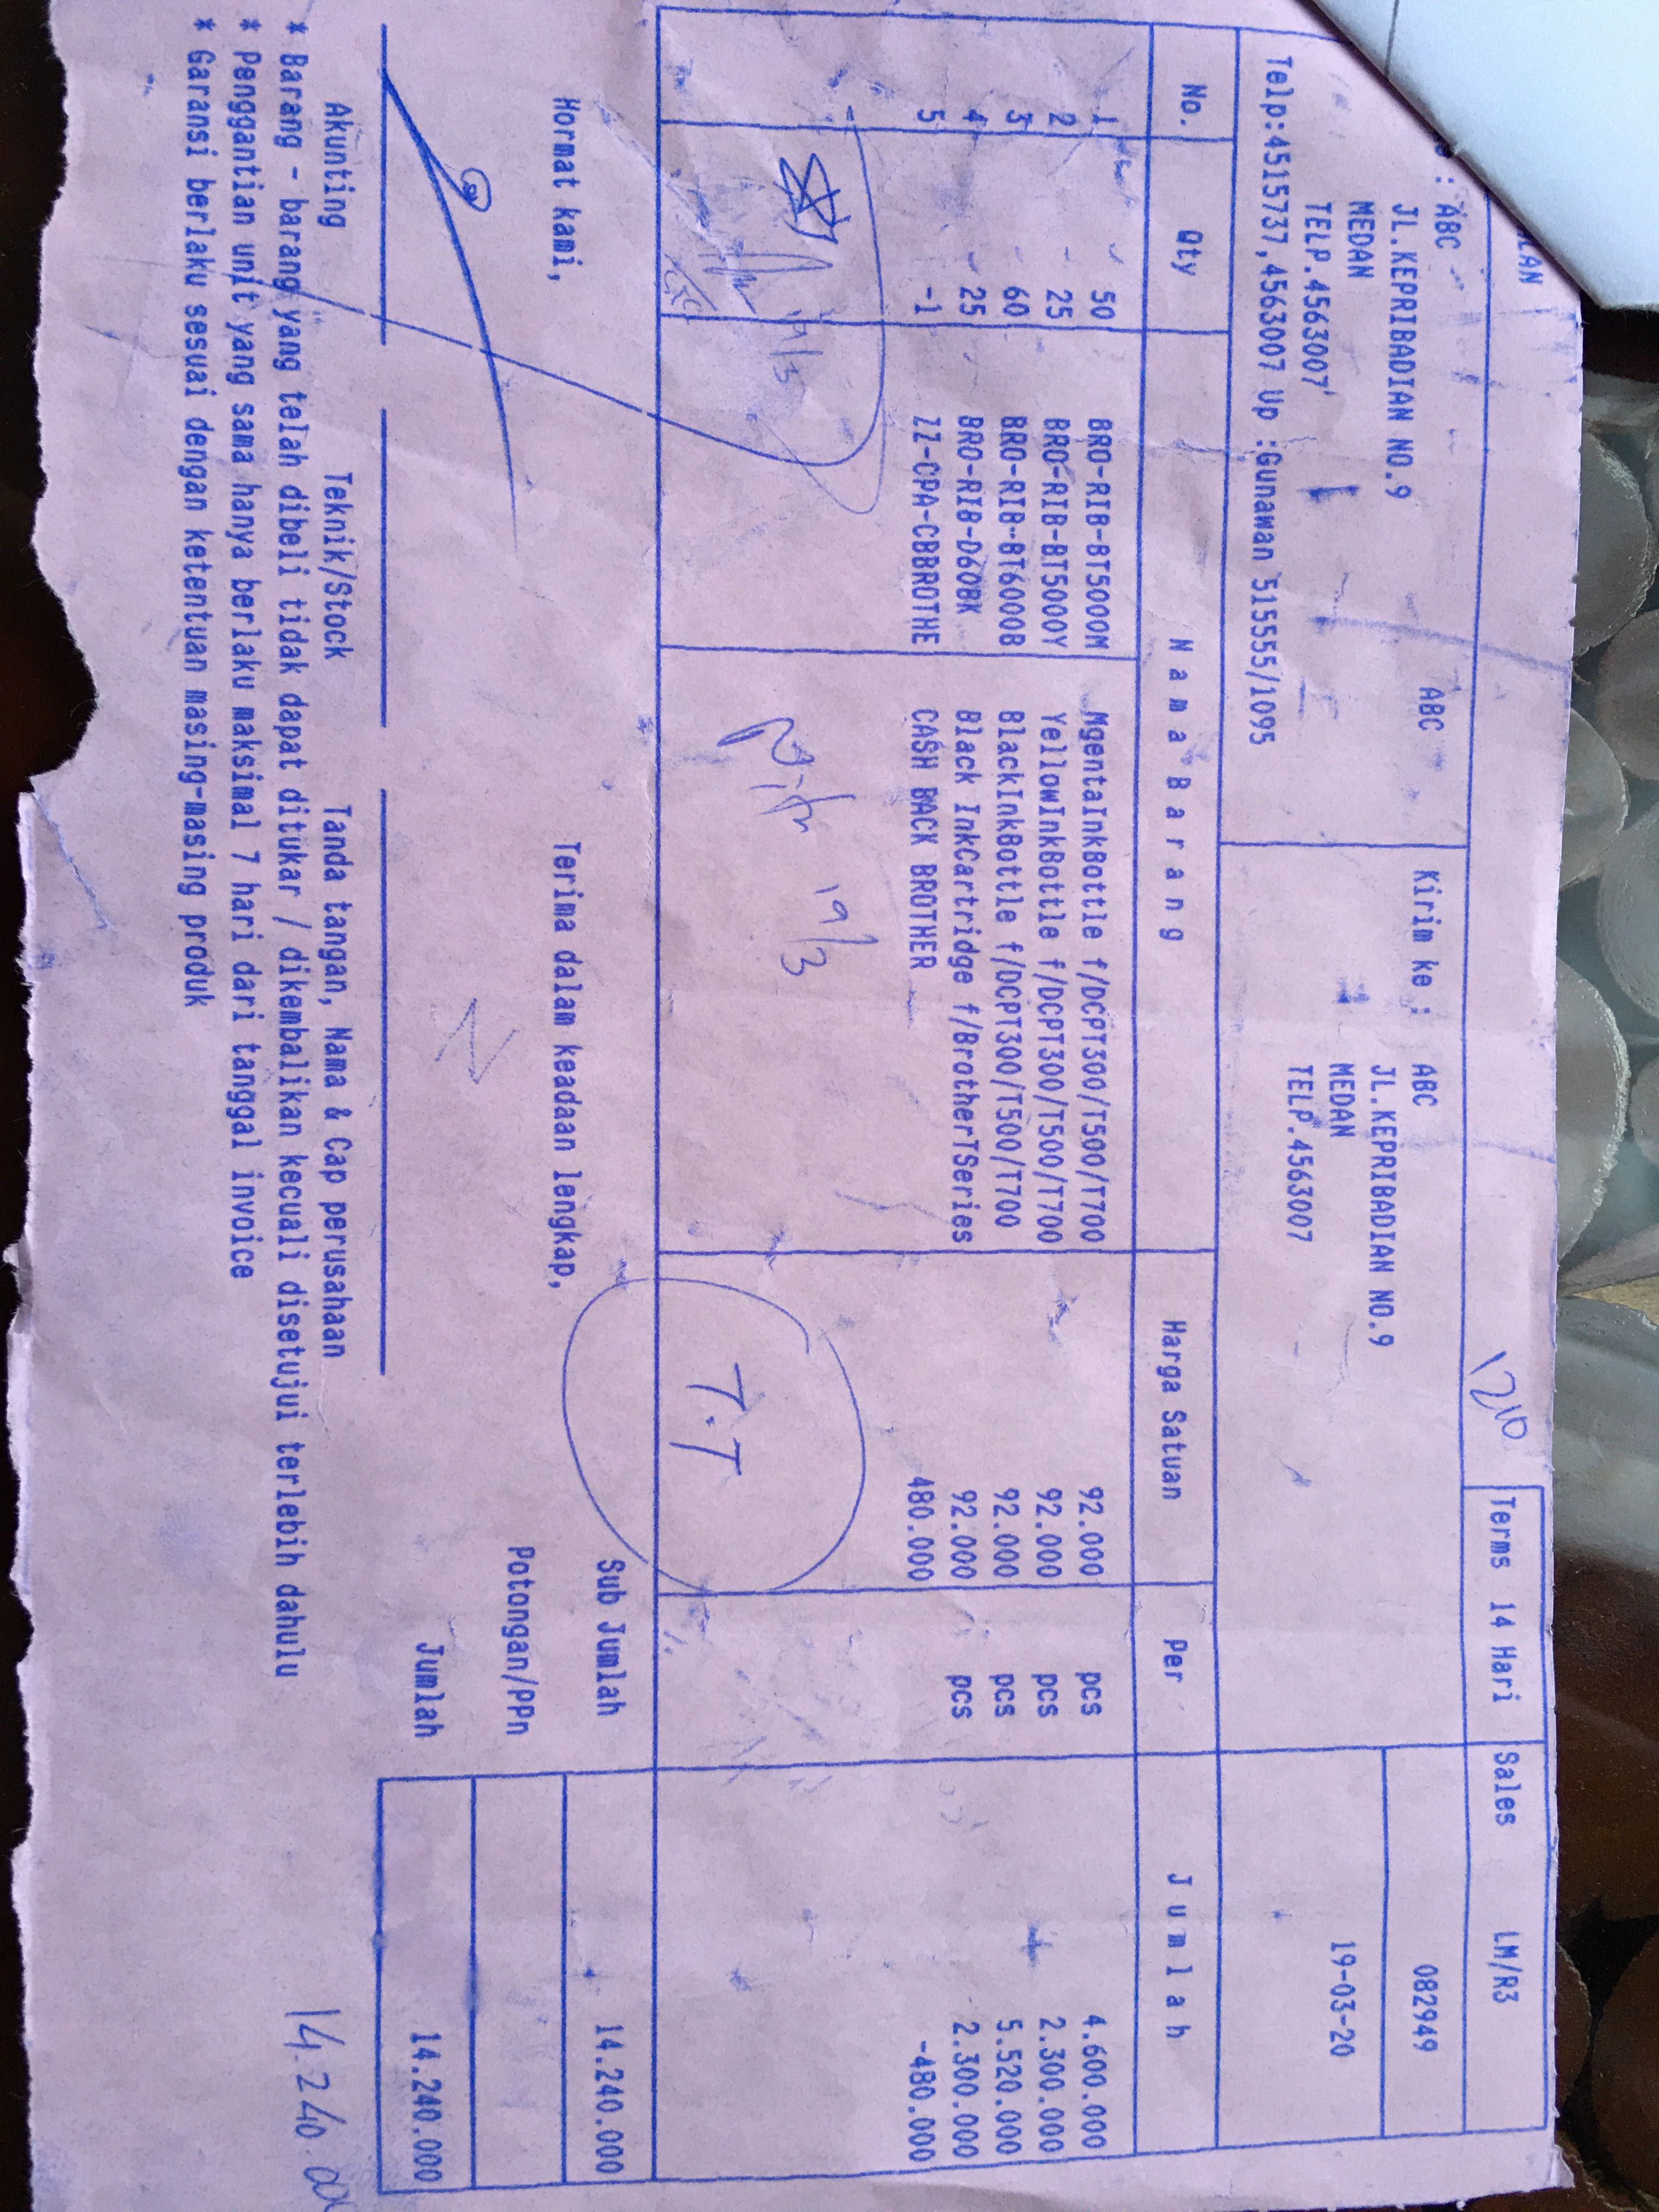 LAN
1210
Terms 14 Hari Sales LM/R3
: ABC ABC Kirim ke : ABC 082949
JL.KEPRIBADIAN NO.9 JL.KEPRIBADIAN NO.9
MEDAN MEDAN 19-03-20
TELP.4563007 TELP.4563007
Telp:4515737,4563007 Up :Gunawan 515555/1095
No. Qty Nama Barang Harga Satuan Per Jumlah
1 50 BRO-RIB-BT5000M MgentaInkBottle f/DCPT300/T500/T700 92.000 pcs 4.600.000
2 25 BRO-RIB-BT5000Y YellowInkBottle f/DCPT300/T500/T700 92.000 pcs 2.300.000
3 60 BRO-RIB-BT6000B BlackInkBottle f/DCPT300/T500/T700 92.000 pcs 5.520.000
4 25 BRO-RIB-D60BK Black InkCartridge f/BrotherTSeries 92.000 pcs 2.300.000
5 -1 ZZ-CPA-CBBROTHE CASH BACK BROTHER 480.000 -480.000
19/3
19/3
T.T
Hormat kami, Terima dalam keadaan lengkap, Sub Jumlah 14.240.000
Potongan/PPn
Jumlah 14.240.000
Akunting Teknik/Stock Tanda tangan, Nama & Cap perusahaan
* Barang - barang yang telah dibeli tidak dapat ditukar / dikembalikan kecuali disetujui terlebih dahulu
14.240.00
* Penggantian unit yang sama hanya berlaku maksimal 7 hari dari tanggal invoice
* Garansi berlaku sesuai dengan ketentuan masing-masing produk